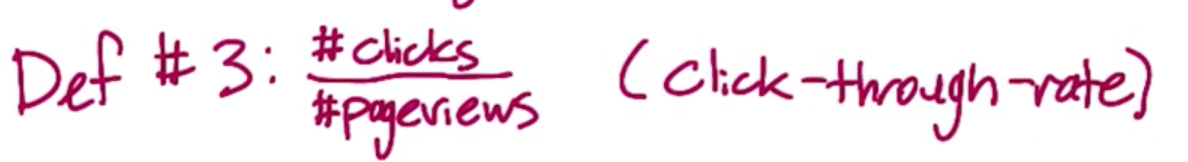 Def #3: #clicks
#pageviews (click-through-rate)